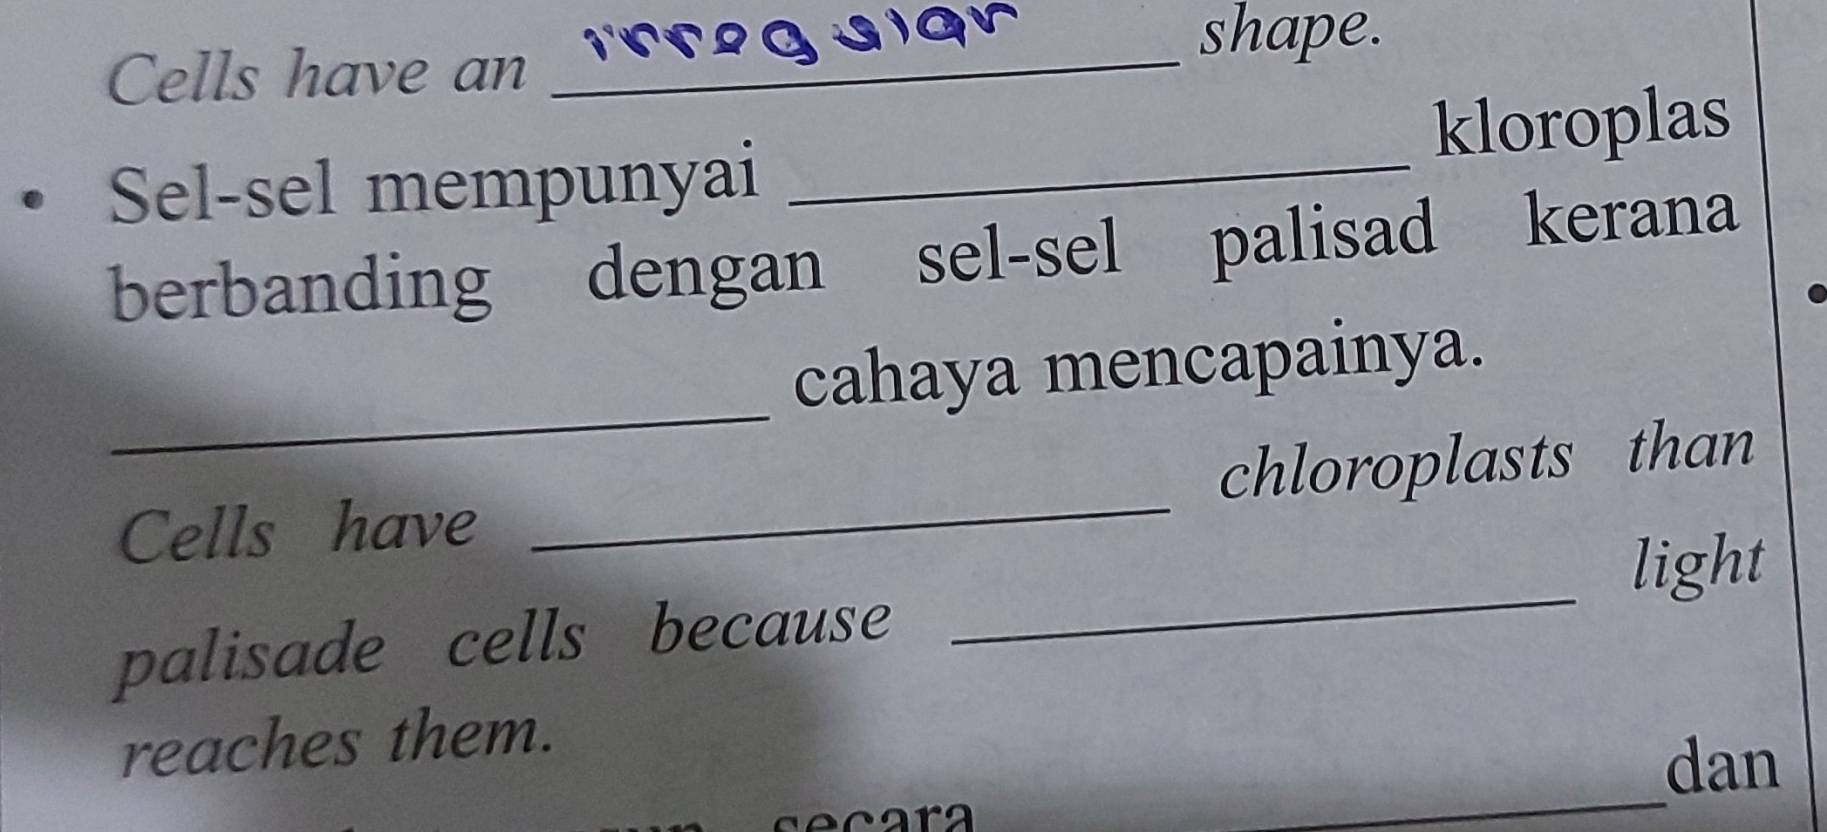 Cells have an irregular shape.
• Sel-sel mempunyai ____________ kloroplas
berbanding dengan sel-sel palisad kerana
____________ cahaya mencapainya.
Cells have ____________ chloroplasts than
palisade cells because ____________ light
reaches them.
secara ____________ dan